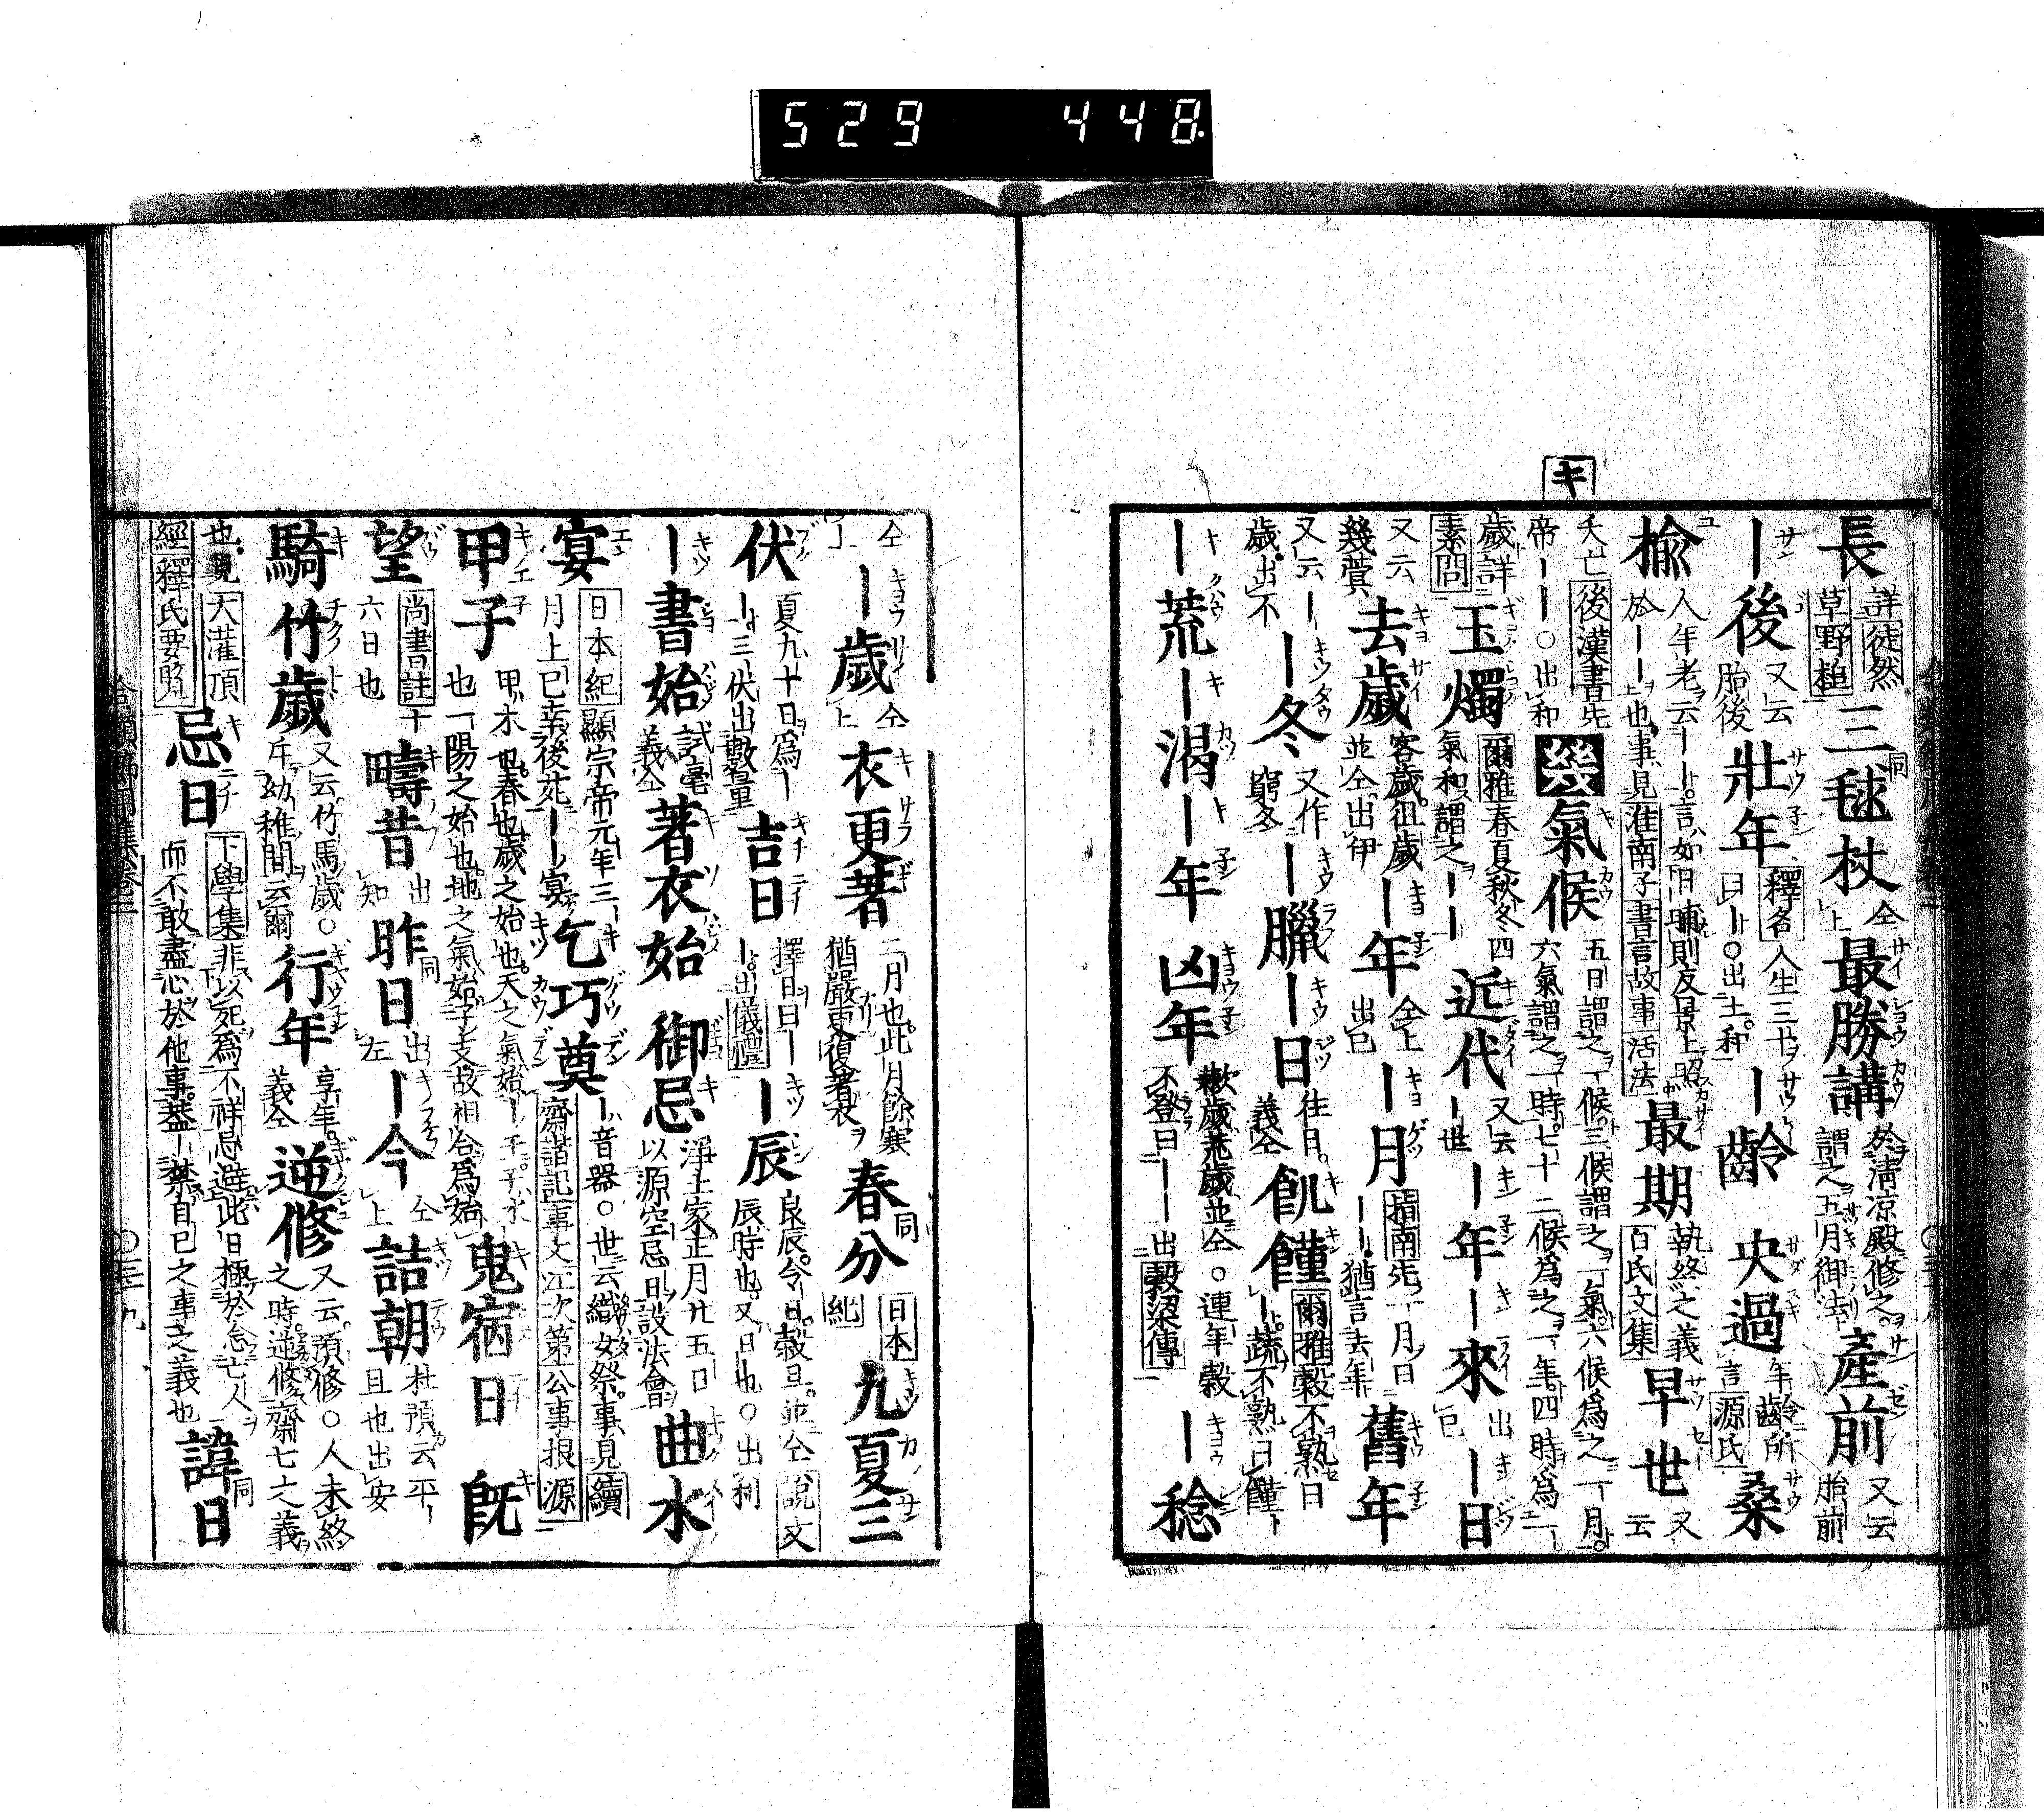 529 448
キ
長 詳徒然草野槌 三毬杖 同 仝上 最勝講 於清涼殿修之謂之五月御法 産前 又云胎前
｜後 又云胎後 壯年 釋名人生三十曰｜○出土和 ｜齡 央過 年齡所言源氏 桑
楡 人年老云｜｜言如日晡則反景上照於｜｜上也事見淮南子書言故事活法 最期 執終之義百氏文集 早世 又云
夭亡後漢書先帝｜｜○出和 幾 氣候 五日謂之一候三候謂之一氣六候爲之一月六氣謂之一時七十二候爲之一年四時爲一
歲詳素問 玉燭 爾雅春夏秋冬四氣和謂之｜｜ 近代 又云｜世 ｜年｜來 出巳 ｜日
又云幾蓂 去歲 客歲徂歲並仝出伊 ｜年 仝上出巳 ｜月 指南先一月曰｜｜猶言去年 舊年
又云｜歲出不 ｜冬 又作窮冬 ｜臘｜日 往日義仝 飢饉 爾雅穀不熟曰｜蔬不熟曰饉｜
｜荒｜渴｜年 凶年 歉歲荒歲並仝○連年穀不登曰｜｜出穀梁傳 ｜稔
仝上 ｜歲 仝上 衣更著 二月也此月餘寒猶嚴更復著衣 春分 同 日本紀 九夏三
伏 夏九十日爲｜｜三伏出數量 吉日 擇日曰｜｜出儀禮 ｜辰 良辰令日穀旦並仝說文辰時也又日也○出利
｜書始 試毫義仝 著衣始 御忌 淨土家正月廿五日以源空忌日設法會 曲水
宴 日本紀顯宗帝元年三月上巳幸後苑｜｜宴 乞巧奠 ｜音器○世云織女祭事見續齊諧記事文江次第公事根源
甲子 甲木也春也歲之始也天之氣始｜子子水也一陽之始也地之氣始子支故相合爲始 鬼宿日 旣
望 尚書註十六日也 疇昔 出知 昨日 同 出左 ｜今 仝上 詰朝 杜預云平｜旦也出安
騎竹歲 又云竹馬歲○斥幼稚間云爾 行年 享年義仝 逆修 又云預修○人未終之時逆修齋七之義
也見大灌頂經釋氏要覧 忌日 下學集非以死爲不祥忌避此日極於念亡人而不敢盡心於他事蓋｜禁自已之事之義也 諱日 同